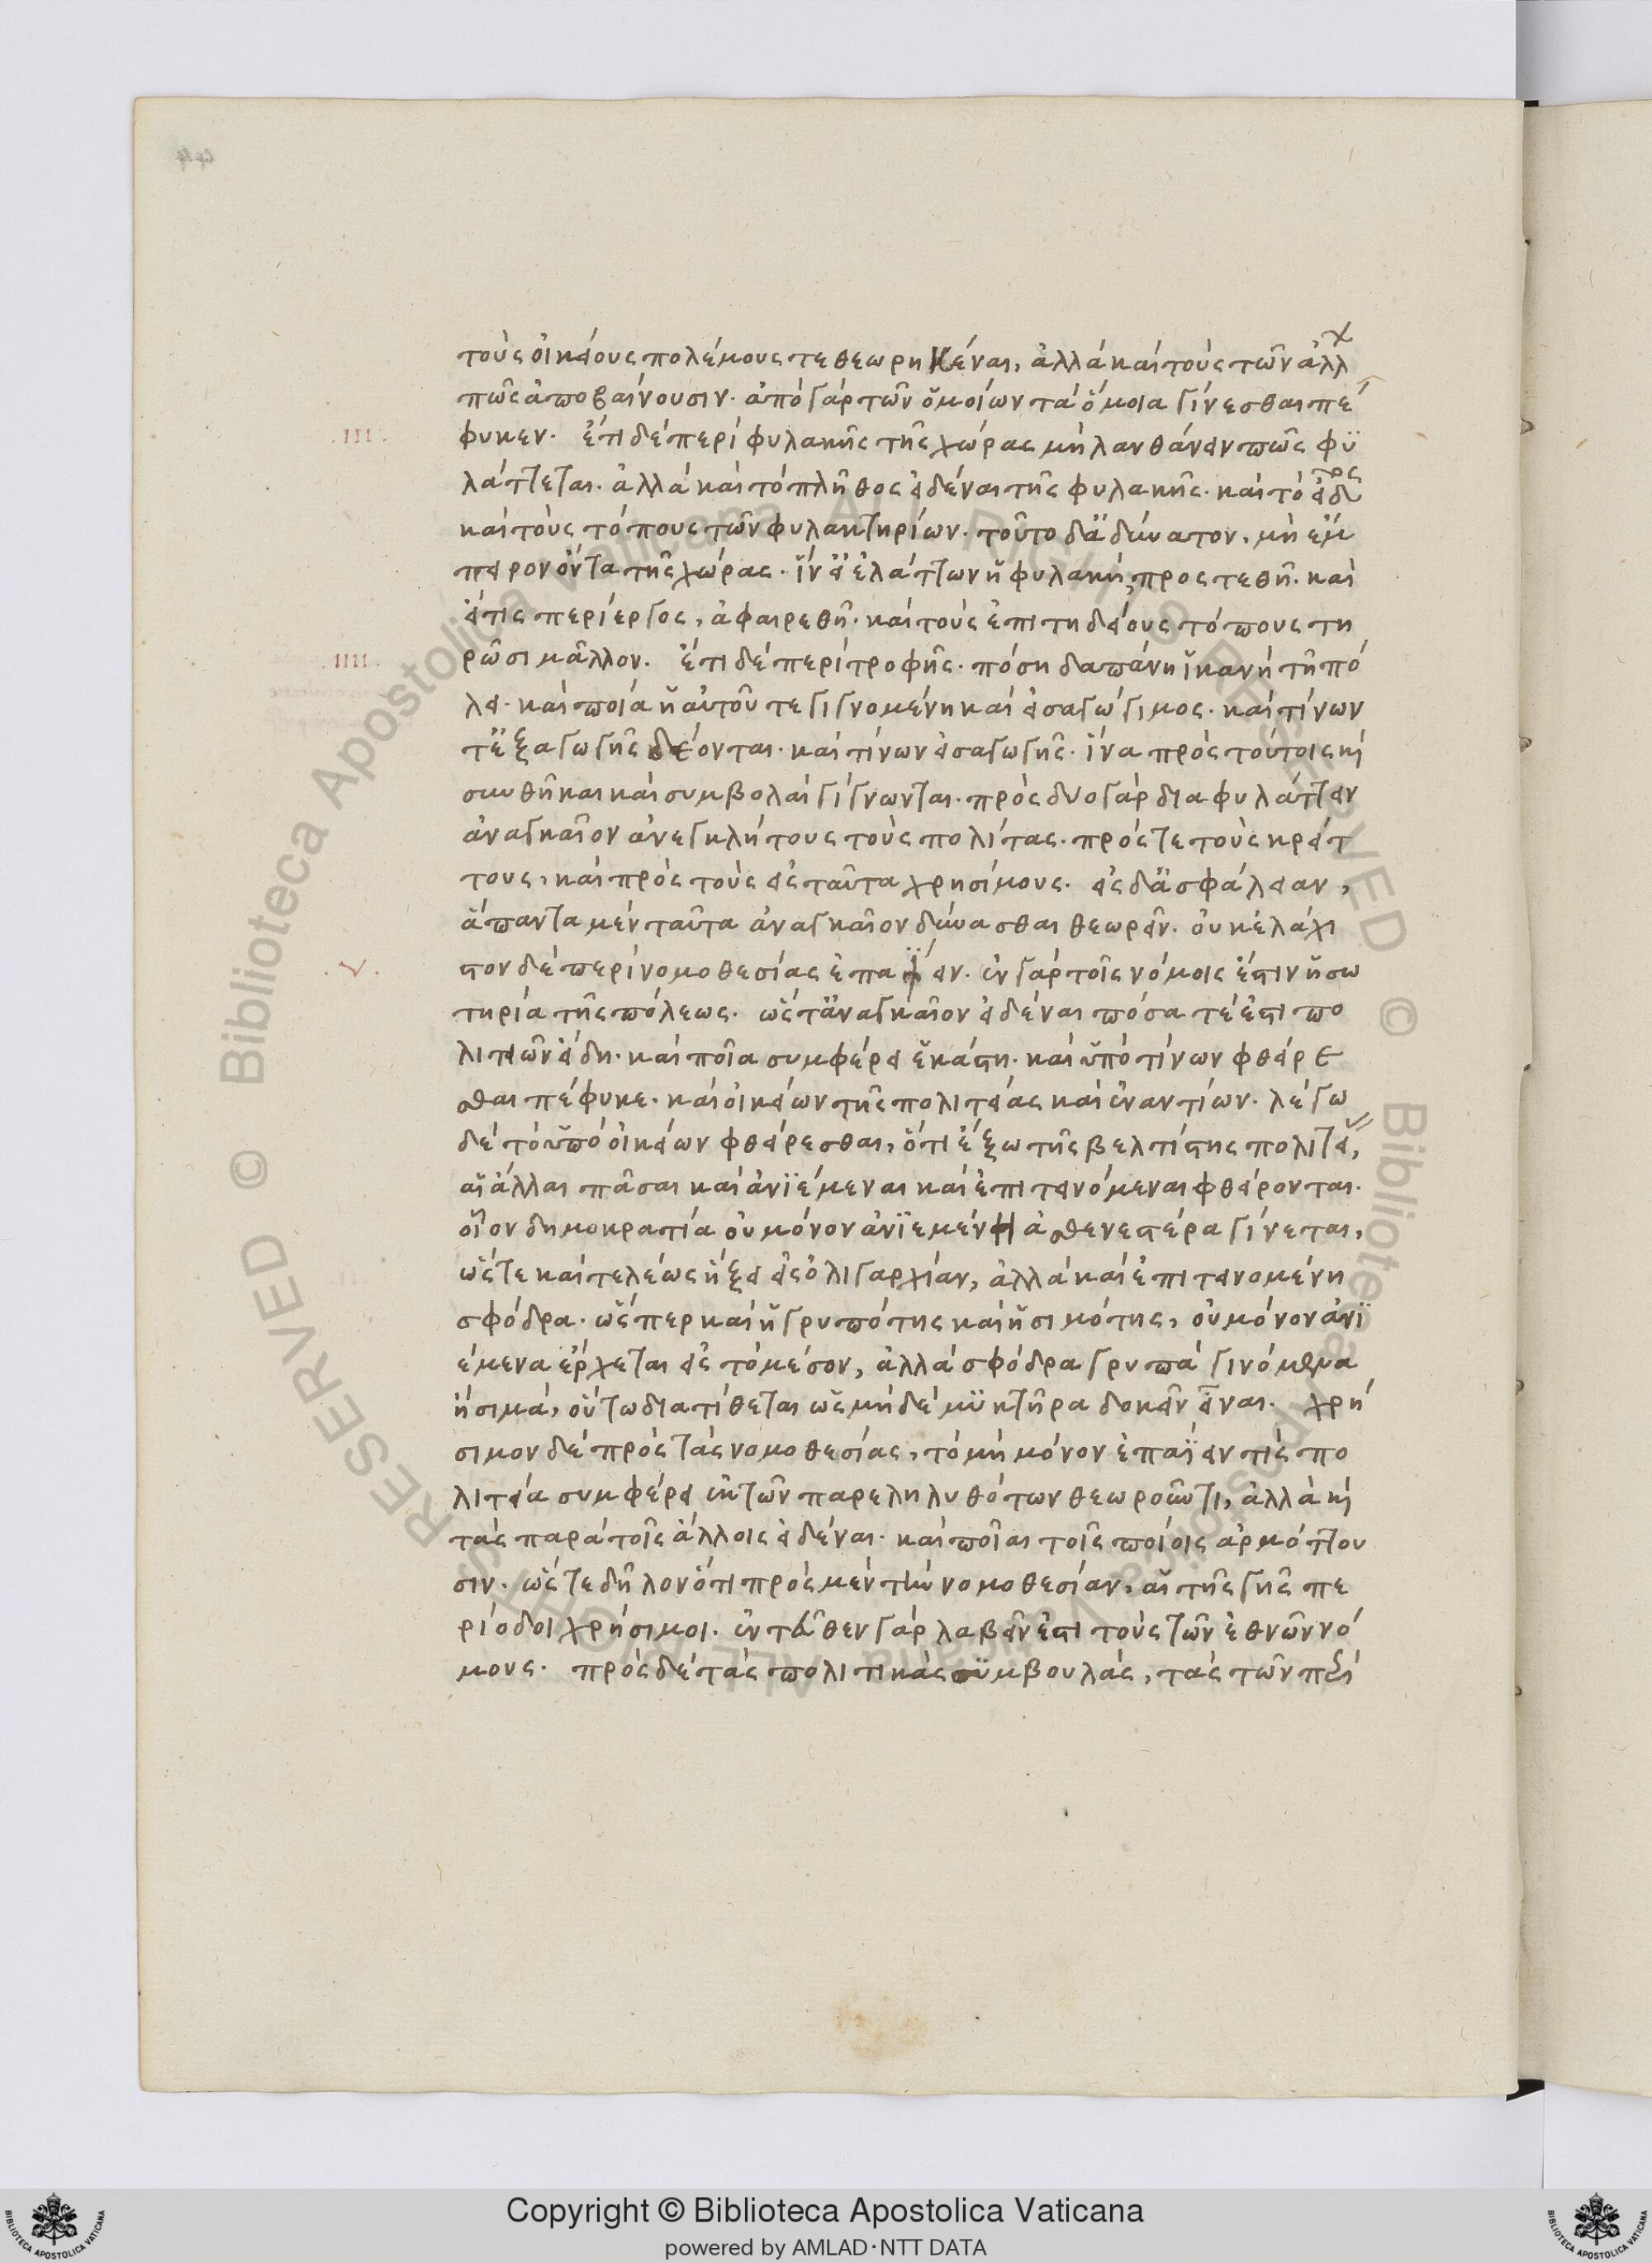 τοὺς οἰκείους πολέμους τεθεωρηκέναι, ἀλλὰ καὶ τοὺς τῶν ἄλλων
πῶς ἀποβαίνουσιν· ἀπὸ γὰρ τῶν ὁμοίων τὰ ὅμοια γίνεσθαι πέ
φυκεν. ἔτι δὲ περὶ φυλακῆς τῆς χώρας μὴ λανθάνειν πῶς φυ
.III.
λάττεται. ἀλλὰ καὶ τὸ πλῆθος εἰδέναι τῆς φυλακῆς· καὶ τὸ εἶδος
καὶ τοὺς τόπους τῶν φυλακτηρίων· τοῦτο δ' ἀδύνατον, μὴ ἔμ
πειρον ὄντα τῆς χώρας· ἵν' εἰ ἐλάττων ἡ φυλακή, προστεθῇ· καὶ
εἴ τις περίεργος, ἀφαιρεθῇ· καὶ τοὺς ἐπιτηδείους τόπους τη
ρῶσι μᾶλλον. ἔτι δὲ περὶ τροφῆς· πόση δαπάνη ἱκανὴ τῇ πό
.IIII.
λει· καὶ ποία ἡ αὐτοῦ τε γιγνομένη καὶ εἰσαγώγιμος· καὶ τίνων
τ' ἐξαγωγῆς δέονται· καὶ τίνων εἰσαγωγῆς· ἵνα πρὸς τούτοις καὶ
συνθῆκαι καὶ συμβολαὶ γίγνωνται· πρὸς δύο γὰρ διαφυλάττειν
ἀναγκαῖον ἀνεγκλήτους τοὺς πολίτας· πρός τε τοὺς κρείτ
τους, καὶ πρὸς τοὺς εἰς ταῦτα χρησίμους. εἰς δ' ἀσφάλειαν,
ἅπαντα μὲν ταῦτα ἀναγκαῖον δύνασθαι θεωρεῖν· οὐκ ἐλάχι
στον δὲ περὶ νομοθεσίας ἐπαΐειν· ἐν γὰρ τοῖς νόμοις ἐστὶν ἡ σω
.V.
τηρία τῆς πόλεως. ὥστ' ἀναγκαῖον εἰδέναι πόσα τέ ἐστι πο
λιτιῶν εἴδη· καὶ ποῖα συμφέρει ἑκάστῃ· καὶ ὑπὸ τίνων φθείρεσ
θαι πέφυκε· καὶ οἰκείων τῆς πολιτείας καὶ ἐναντίων. λέγω
δὲ τὸ ὑπὸ οἰκείων φθείρεσθαι, ὅτι ἔξω τῆς βελτίστης πολιτείας,
αἱ ἄλλαι πᾶσαι καὶ ἀνιέμεναι καὶ ἐπιτεινόμεναι φθείρονται.
οἷον δημοκρατία οὐ μόνον ἀνιεμένη ἀσθενεστέρα γίνεται,
ὥστε καὶ τελέως ἥξει εἰς ὀλιγαρχίαν, ἀλλὰ καὶ ἐπιτεινομένη
σφόδρα· ὥσπερ καὶ ἡ γρυπότης καὶ ἡ σιμότης, οὐ μόνον ἀνι
έμενα ἔρχεται εἰς τὸ μέσον, ἀλλὰ σφόδρα γρυπὰ γινόμενα
ἢ σιμά, οὕτω διατίθεται ὡς μηδὲ μυκτῆρα δοκεῖν εἶναι. χρή
σιμον δὲ πρὸς τὰς νομοθεσίας, τὸ μὴ μόνον ἐπαΐειν τίς πο
λιτεία συμφέρει ἐκ τῶν παρεληλυθότων θεωροῦντι, ἀλλὰ καὶ
τὰς παρὰ τοῖς ἄλλοις εἰδέναι· καὶ ποῖαι τοῖς ποίοις ἁρμόττου
σιν. ὥστε δῆλον ὅτι πρὸς μὲν τὴν νομοθεσίαν, αἱ τῆς γῆς πε
ρίοδοι χρήσιμοι. ἐνταῦθεν γὰρ λαβεῖν ἔστι τοὺς τῶν ἐθνῶν νό
μους. πρὸς δὲ τὰς πολιτικὰς συμβουλάς, τὰς τῶν περὶ
Copyright © Biblioteca Apostolica Vaticana
powered by AMLAD·NTT DATA